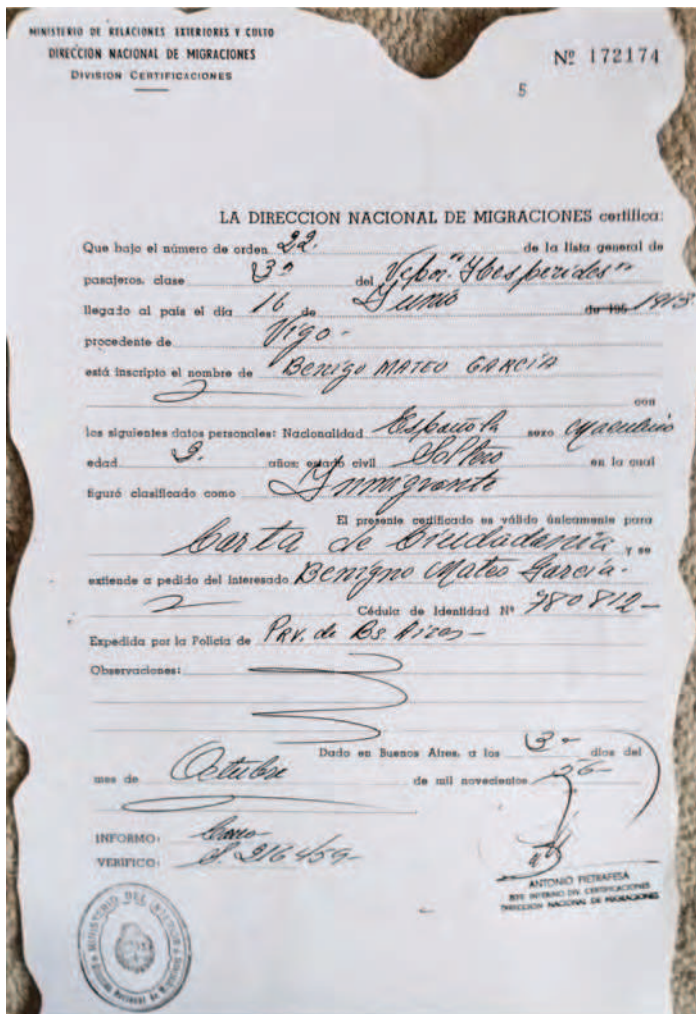 MINISTERIO DE RELACIONES EXTERIORES Y CULTO
DIRECCION NACIONAL DE MIGRACIONES
DIVISION CERTIFICACIONES
Nº 172174
5
LA DIRECCION NACIONAL DE MIGRACIONES certifica:
Que bajo el número de orden 22. de la lista general de
pasajeros, clase 3ª del Vapor "Hesperides"
llegado al país el día 16 de Junio de 195 1913
procedente de Vigo -
está inscripto el nombre de Benigo MATEO GARCIA
con
los siguientes datos personales: Nacionalidad Española sexo Masculino
edad 9. años; estado civil Soltero en la cual
figuró clasificado como Inmigrante
El presente certificado es válido únicamente para
Carta de Ciudadanía y se
extiende a pedido del interesado Benigno Mateo García.
Cédula de Identidad Nº 780812-
Expedida por la Policía de Prv. de Bs. Aires-
Observaciones:
Dado en Buenos Aires, a los 3- días del
mes de Octubre de mil novecientos 56-
INFORMO:
VERIFICO: 216459-
ANTONIO PIETRAFESA
JEFE INTERINO DIV. CERTIFICACIONES
DIRECCION NACIONAL DE MIGRACIONES
MINISTERIO DEL INTERIOR